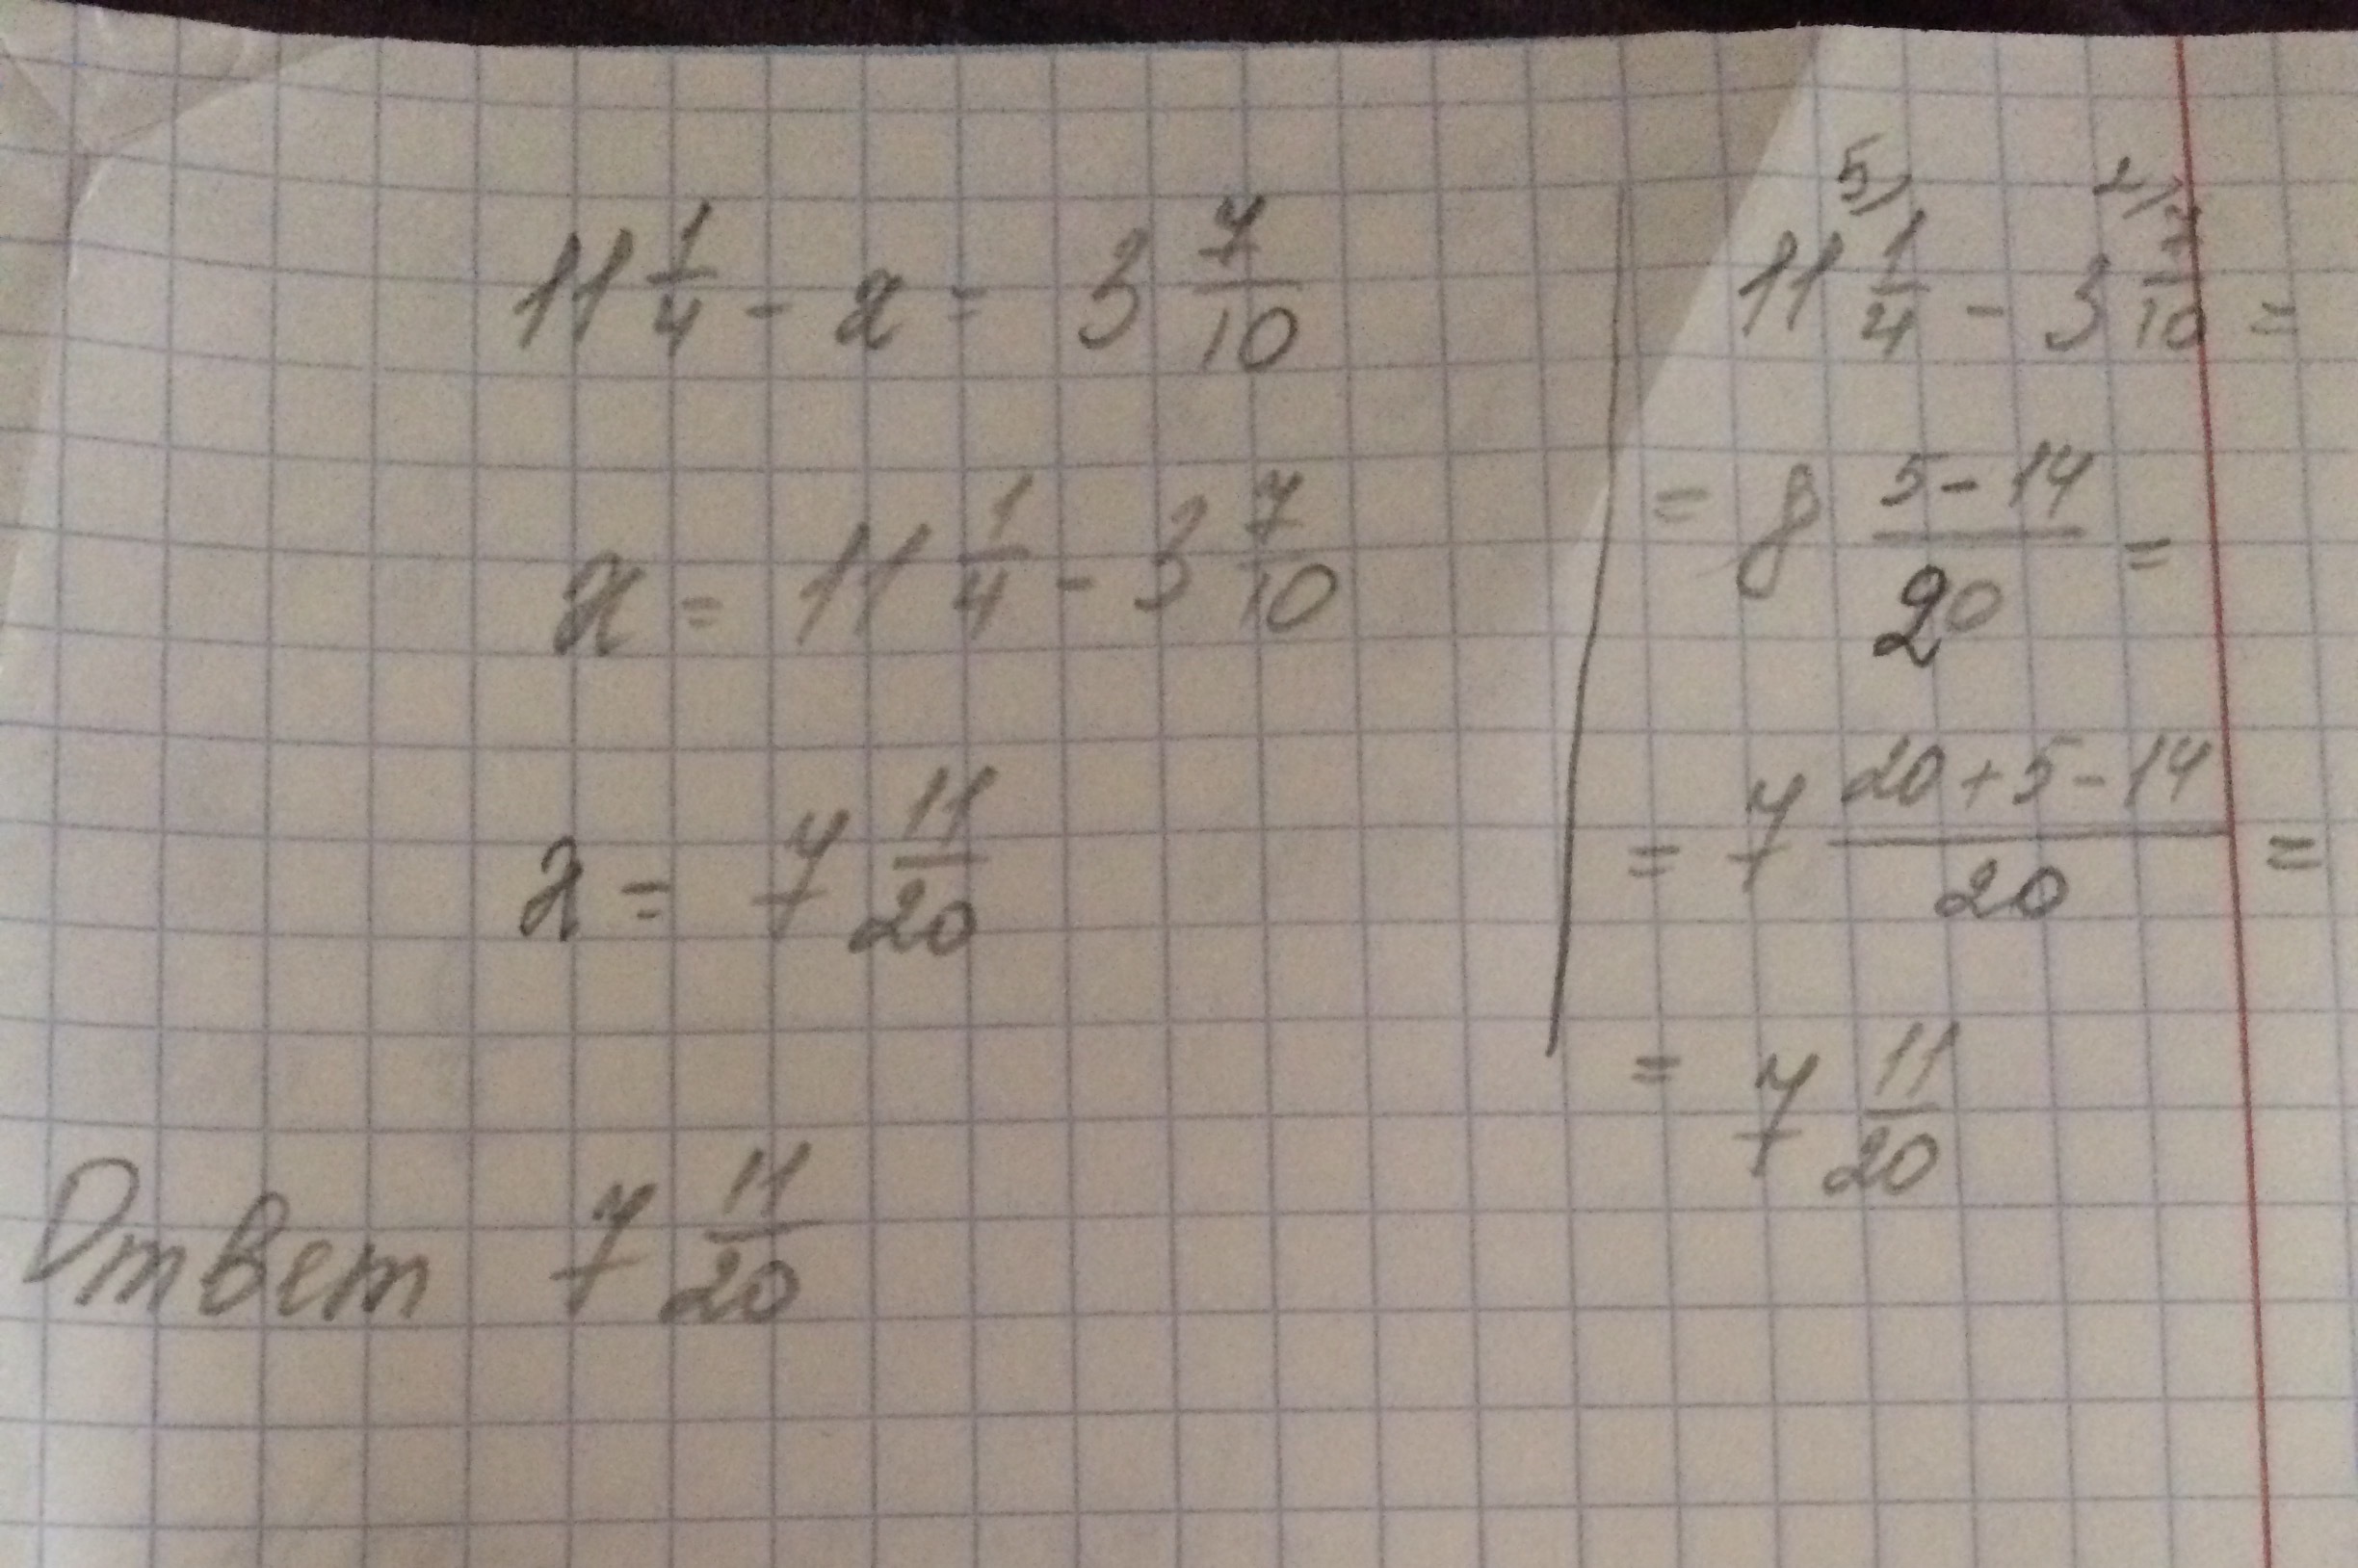 11 1/4 - x = 3 7/10
x = 11 1/4 - 3 7/10
x = 7 11/20
Ответ 7 11/20
5) 2)
11 1/4 - 3 7/10 =
= 8 (5-14)/20 =
= 7 (20+5-14)/20 =
= 7 11/20